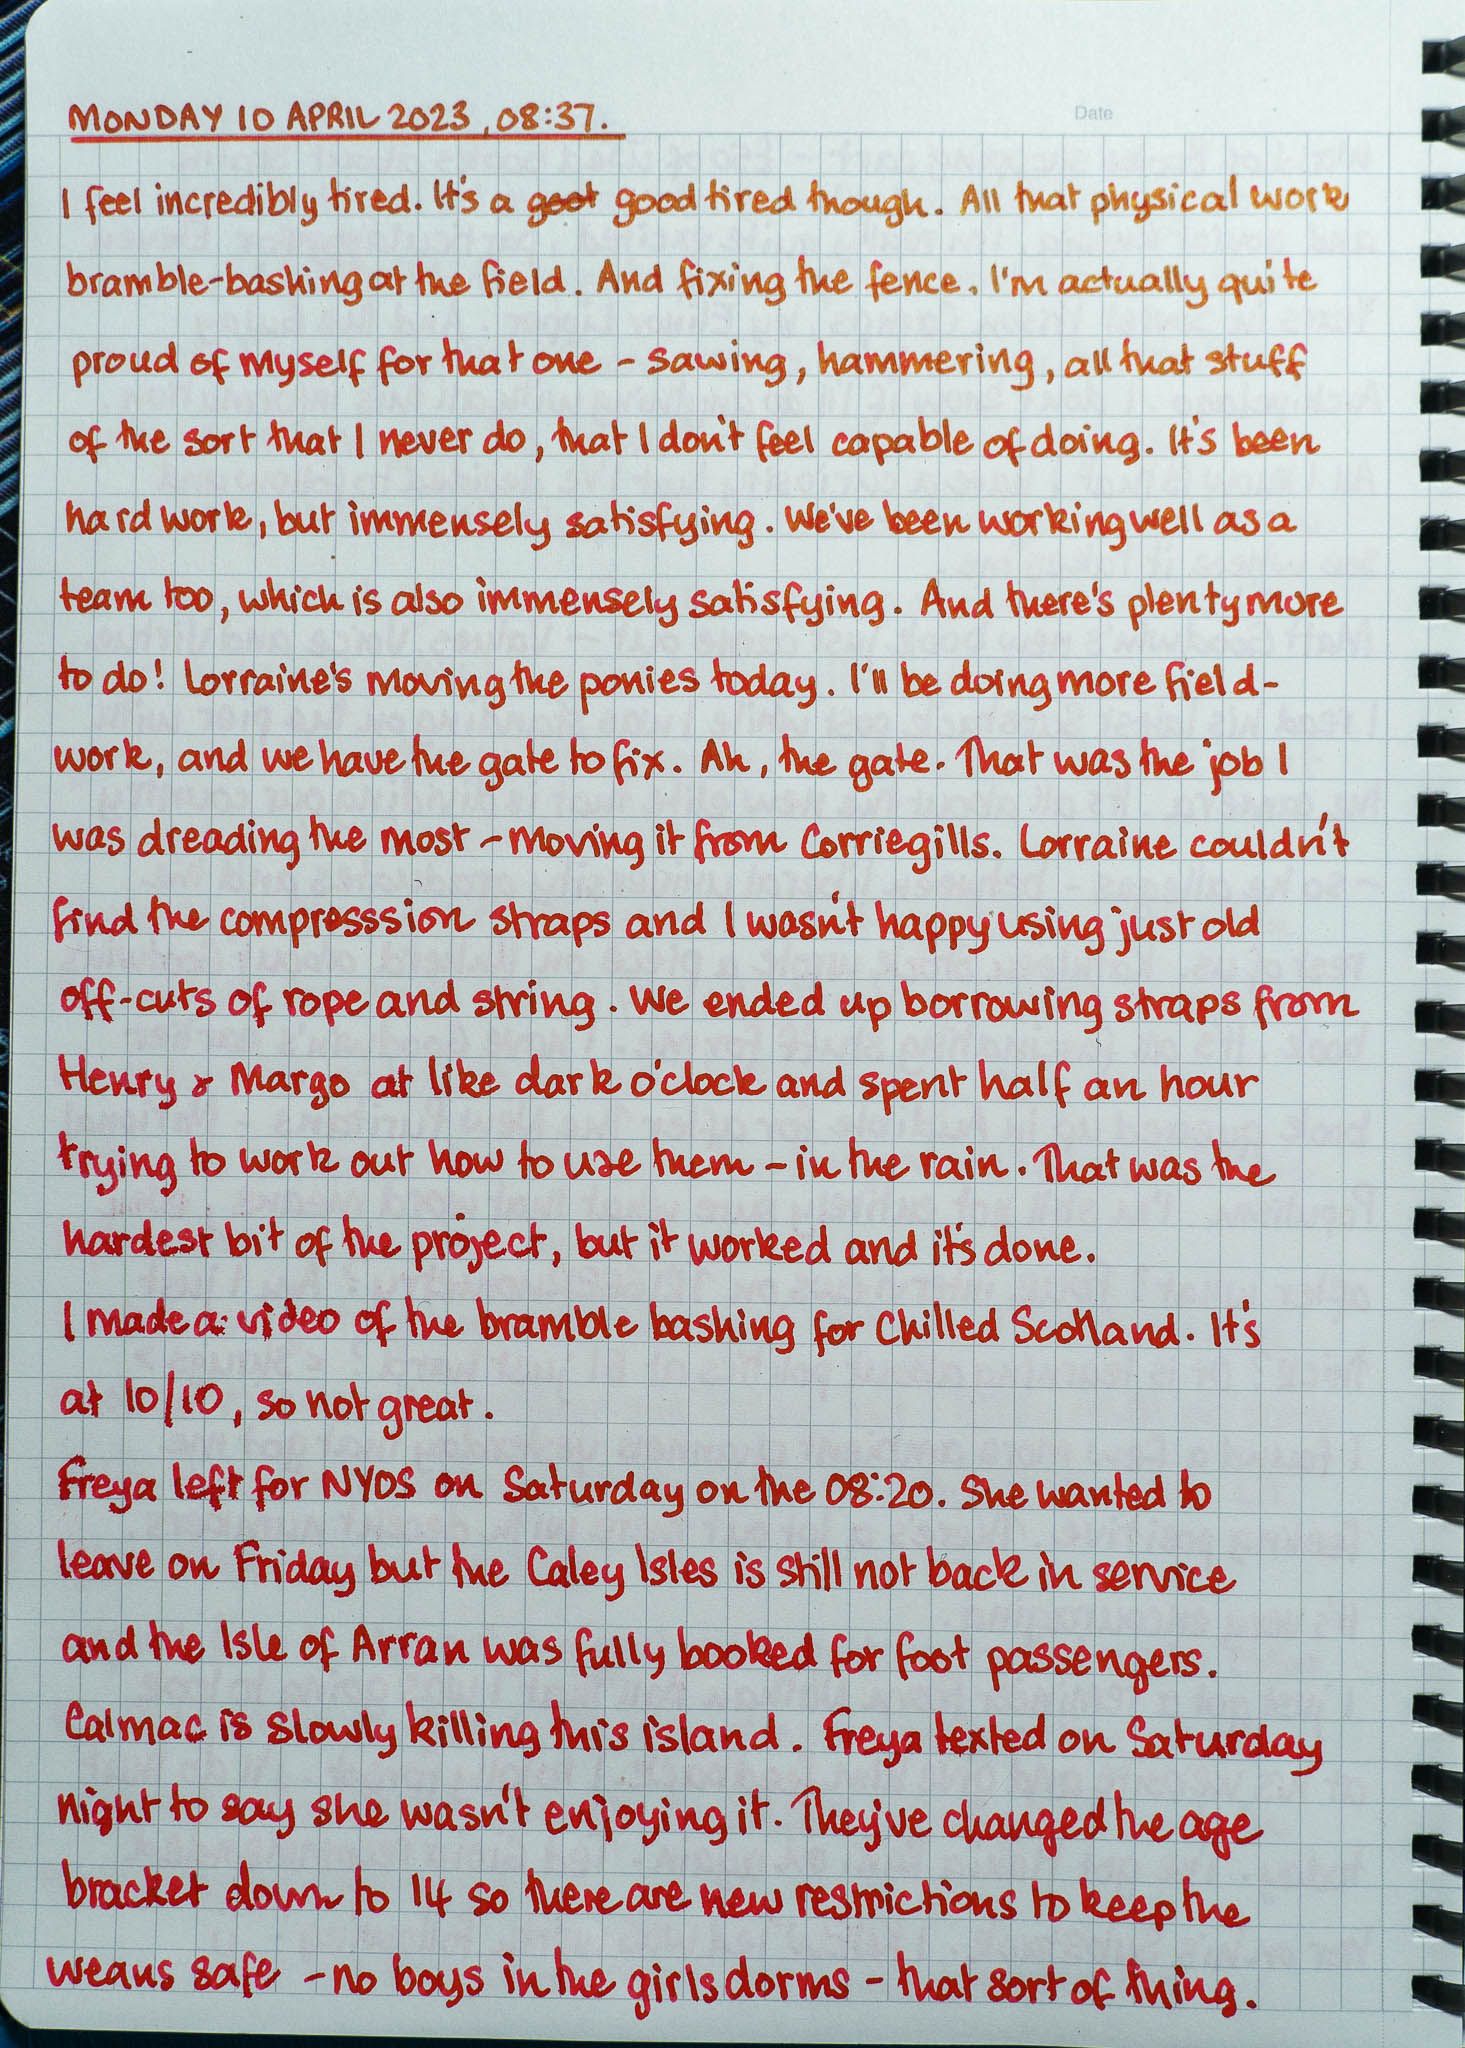 Date
MONDAY 10 APRIL 2023, 08:37.
I feel incredibly tired. It's a goot good tired though. All that physical work
bramble-bashing at the field. And fixing the fence. I'm actually quite
proud of myself for that one - sawing, hammering, all that stuff
of the sort that I never do, that I don't feel capable of doing. It's been
hard work, but immensely satisfying. We've been working well as a
team too, which is also immensely satisfying. And there's plenty more
to do! Lorraine's moving the ponies today. I'll be doing more field-
work, and we have the gate to fix. Ah, the gate. That was the job I
was dreading the most - moving it from Corriegills. Lorraine couldn't
find the compresssion straps and I wasn't happy using just old
off-cuts of rope and string. We ended up borrowing straps from
Henry & Margo at like dark o'clock and spent half an hour
trying to work out how to use them - in the rain. That was the
hardest bit of the project, but it worked and it's done.
I made a video of the bramble bashing for Chilled Scotland. It's
at 10/10, so not great.
Freya left for NYOS on Saturday on the 08:20. She wanted to
leave on Friday but the Caley Isles is still not back in service
and the Isle of Arran was fully booked for foot passengers.
Calmac is slowly killing this island. Freya texted on Saturday
night to say she wasn't enjoying it. They've changed the age
bracket down to 14 so there are new restrictions to keep the
weans safe - no boys in the girls dorms - that sort of thing.